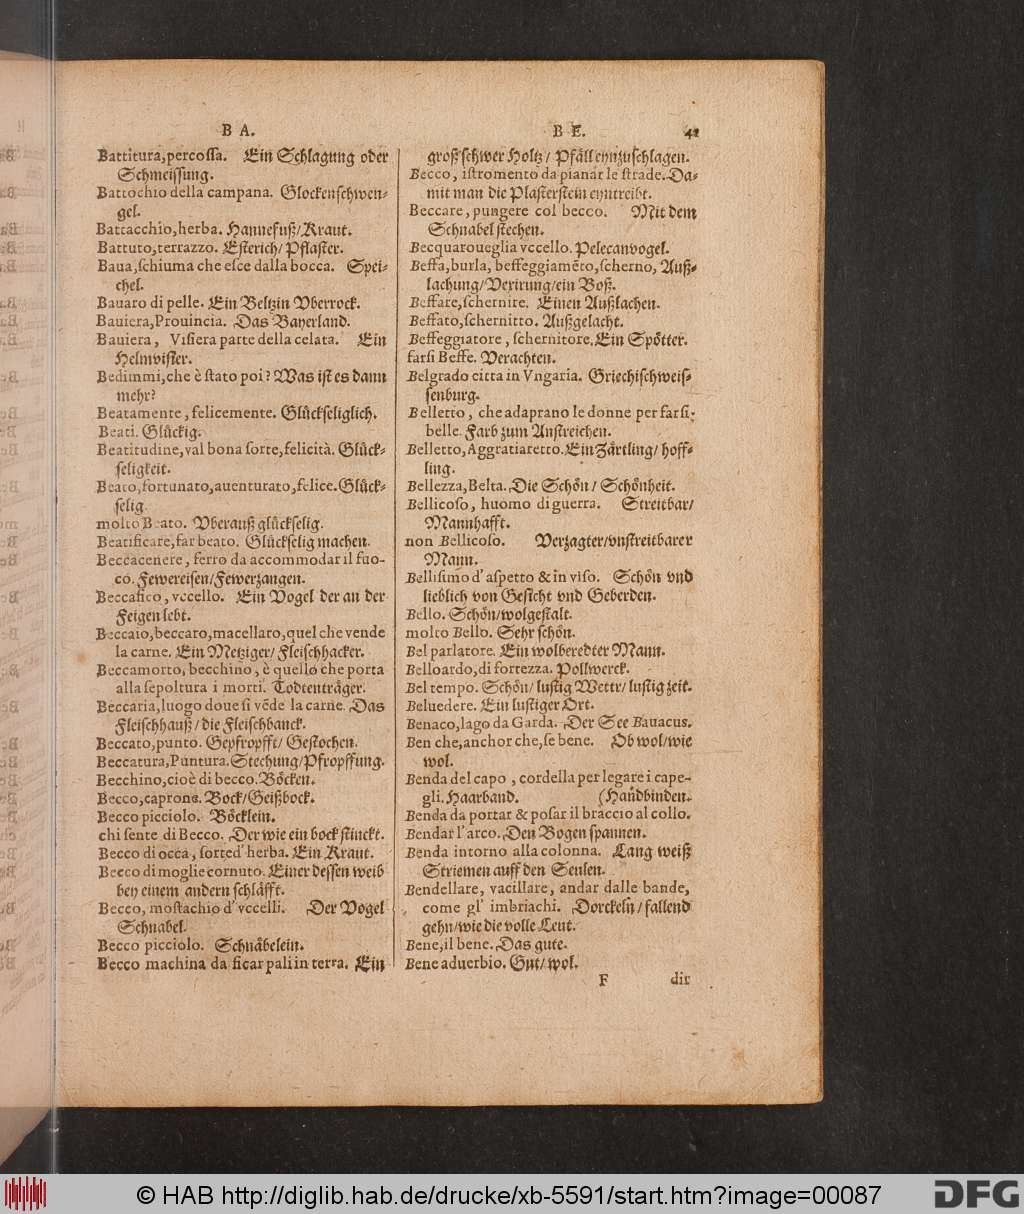 B A.
Battitura,percossa. Ein Schlagung oder
Schmeissung.
Battochio della campana. Glockenschwen-
gel.
Battacchio,herba. Hannefuß/Kraut.
Battuto,terrazzo. Esterich/ Pflaster.
Baua,schiuma che esce dalla bocca. Spei-
chel.
Bauaro di pelle. Ein Beltzin Vberrock.
Bauiera,Prouincia. Das Bayerland.
Bauiera, Visiera parte della celata. Ein
Helmvister.
Bedimmi,che è stato poi? Was ist es dann
mehr?
Beatamente, felicemente. Glückseliglich.
Beati. Glückig.
Beatitudine,val bona sorte,felicità. Glück-
seligkeit.
Beato,fortunato,auenturato,felice. Glück-
selig.
molto Beato. Vberauß glückselig.
Beatificare,far beato. Glückselig machen.
Beccacenere, ferro da accommodar il fuo-
co. Fewereisen/Fewerzangen.
Beccafico, vccello. Ein Vogel der an der
Feigen lebt.
Beccaio,beccaro,macellaro,quel che vende
la carne. Ein Metziger/ Fleischhacker.
Beccamorto, becchino, è quello che porta
alla sepoltura i morti. Todtenträger.
Beccaria,luogo doue si vēde la carne. Das
Fleischhauß / die Fleischbanck.
Beccato,punto. Gepfropfft/ Gestochen.
Beccatura,Puntura. Stechung/Pfropffung.
Becchino,cioè di becco. Böcken.
Becco,caprone. Bock/Geißbock.
Becco picciolo. Böcklein.
chi sente di Becco. Der wie ein bock stinckt.
Becco di occa, sorted' herba. Ein Kraut.
Becco di moglie cornuto. Einer dessen weib
bey einem andern schläfft.
Becco, mostachio d' vccelli. Der Vogel
Schnabel.
Becco picciolo. Schnäbelein.
Becco machina da ficar pali in terra. Ein
B E. 42
groß schwer Holtz / Pfäll eynzuschlagen.
Becco, istromento da pianar le strade. Da-
mit man die Plasterstein eyntreibt.
Beccare, pungere col becco. Mit dem
Schnabel stechen.
Becquaroueglia vccello. Pelecanvogel.
Beffa,burla, beffeggiamēto,scherno, Auß-
lachung/Vexirung/ein Boß.
Beffare,schernire. Einen Außlachen.
Beffato,schernitto. Außgelacht.
Beffeggiatore, schernitore. Ein Spötter.
farsi Beffe. Verachten.
Belgrado citta in Vngaria. Griechischweis-
senburg.
Belletto, che adaprano le donne per farsi
belle. Farb zum Anstreichen.
Belletto,Aggratiaretto. Ein Zärtling/ hoff-
ling.
Bellezza,Belta. Die Schön / Schönheit.
Bellicoso, huomo di guerra. Streitbar/
Mannhafft.
non Bellicoso. Verzagter/vnstreitbarer
Mann.
Bellisimo d' aspetto & in viso. Schön vnd
lieblich von Gesicht vnd Geberden.
Bello. Schön/wolgestalt.
molto Bello. Sehr schön.
Bel parlatore. Ein wolberedter Mann.
Belloardo,di fortezza. Pollwerck.
Bel tempo. Schön/ lustig Wettr/ lustig zeit.
Beluedere. Ein lustiger Ort.
Benaco,lago da Garda. Der See Bauacus.
Ben che,anchor che,se bene. Ob wol/wie
wol.
Benda del capo, cordella per legare i cape-
gli. Haarband. (Handbinden.
Benda da portar & posar il braccio al collo.
Bendar l' arco. Den Bogen spannen.
Benda intorno alla colonna. Lang weiß
Striemen auff den Seulen.
Bendellare, vacillare, andar dalle bande,
come gl' imbriachi. Dorckeln / fallend
gehn/wie die volle Leut.
Bene,il bene. Das gute.
Bene aduerbio. Gut/ wol.
F dir
© HAB http://diglib.hab.de/drucke/xb-5591/start.htm?image=00087
DFG